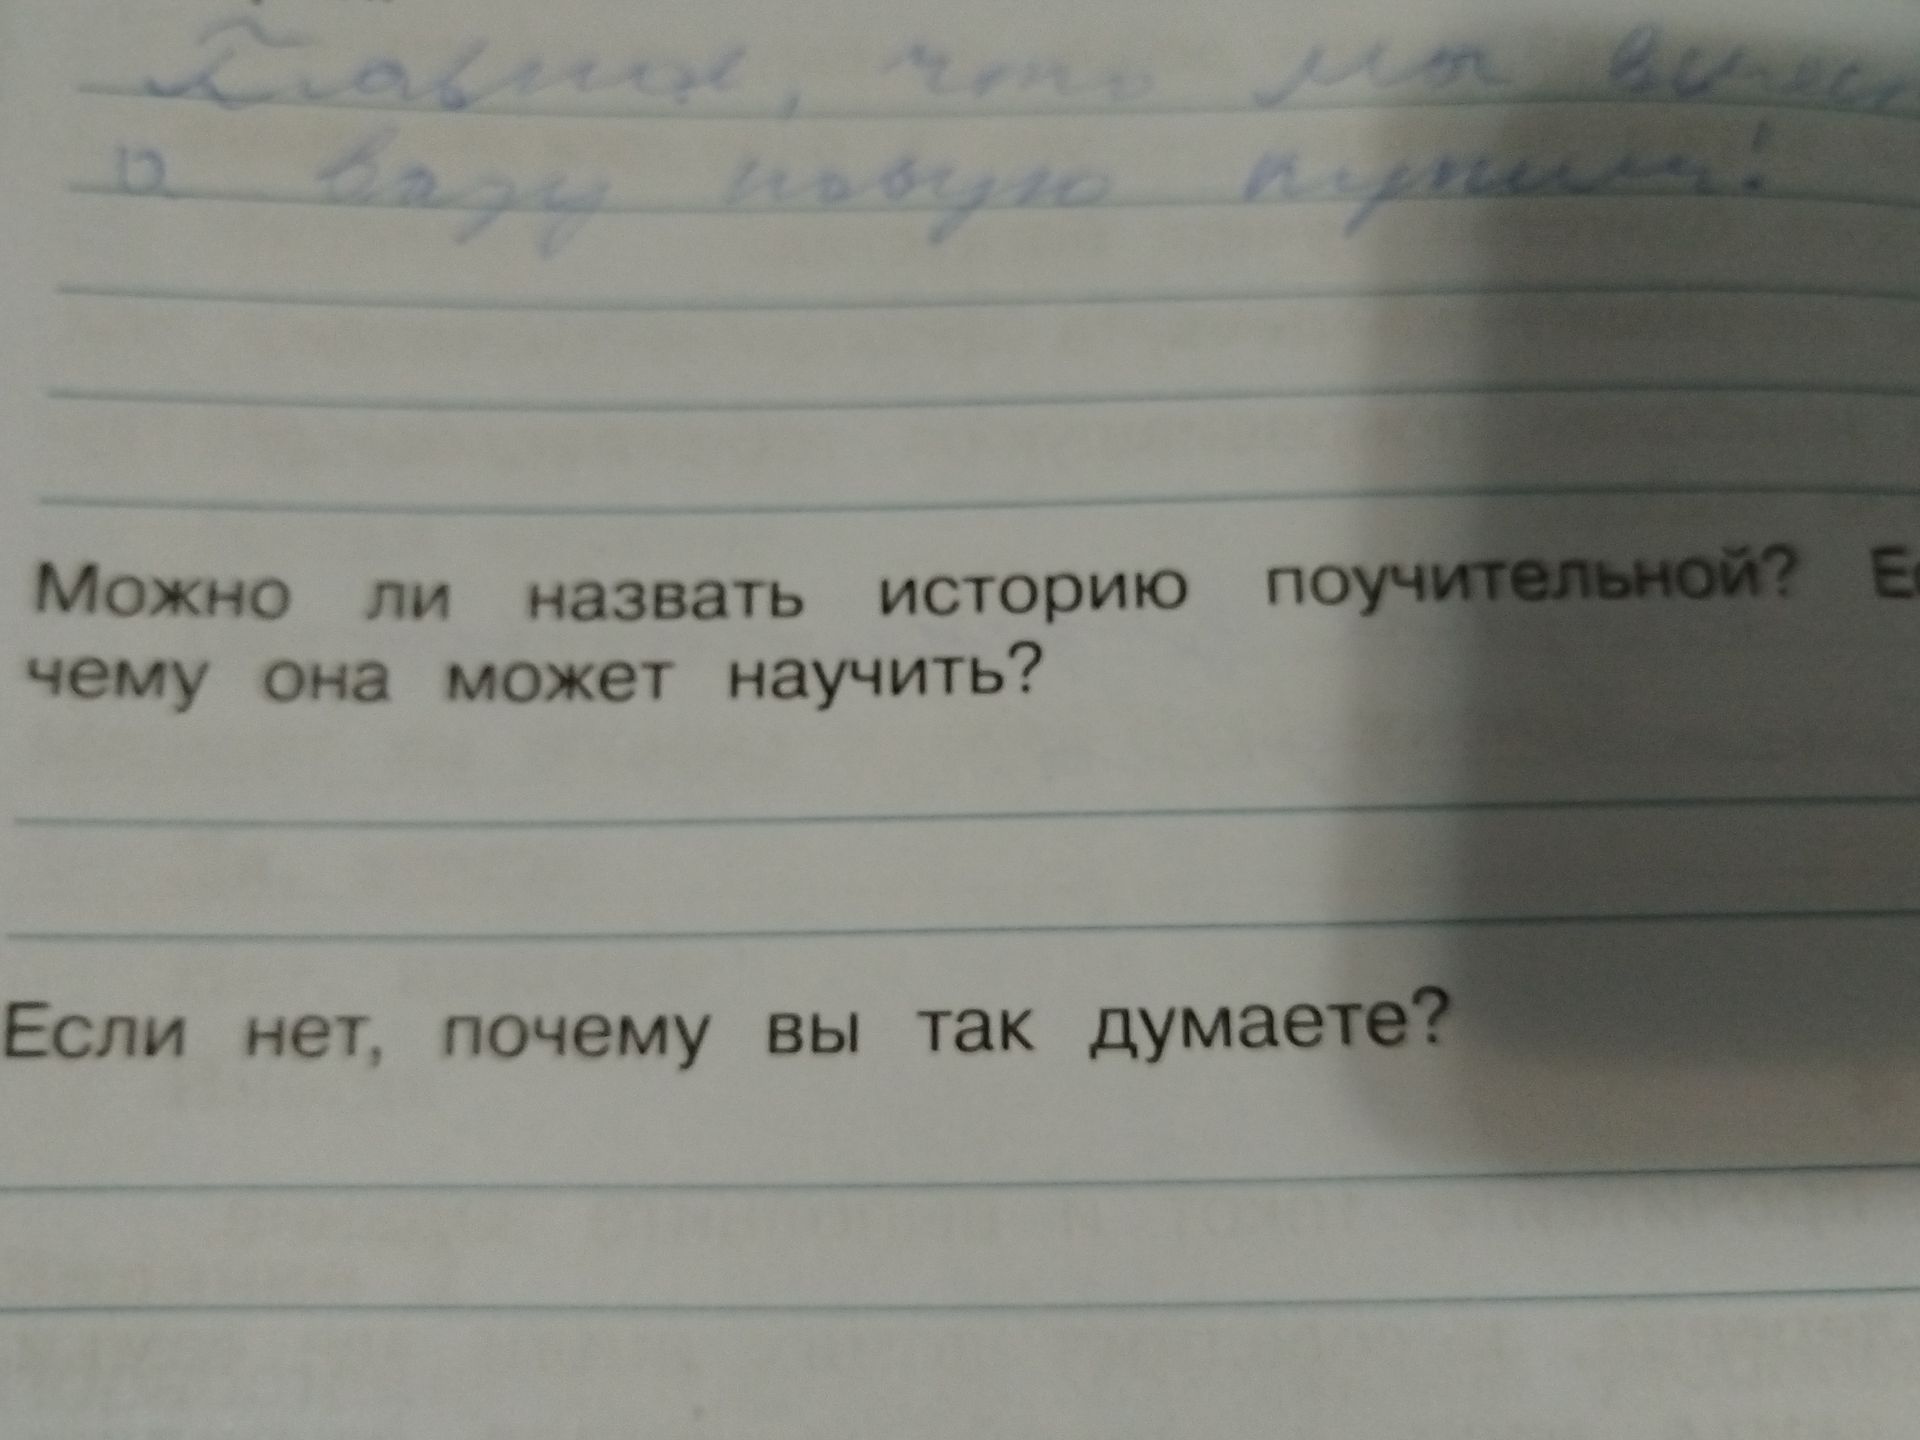 Главное, что мы вместе
а вазу новую купим!
Можно ли назвать историю поучительной? Ес
чему она может научить?
Если нет, почему вы так думаете?